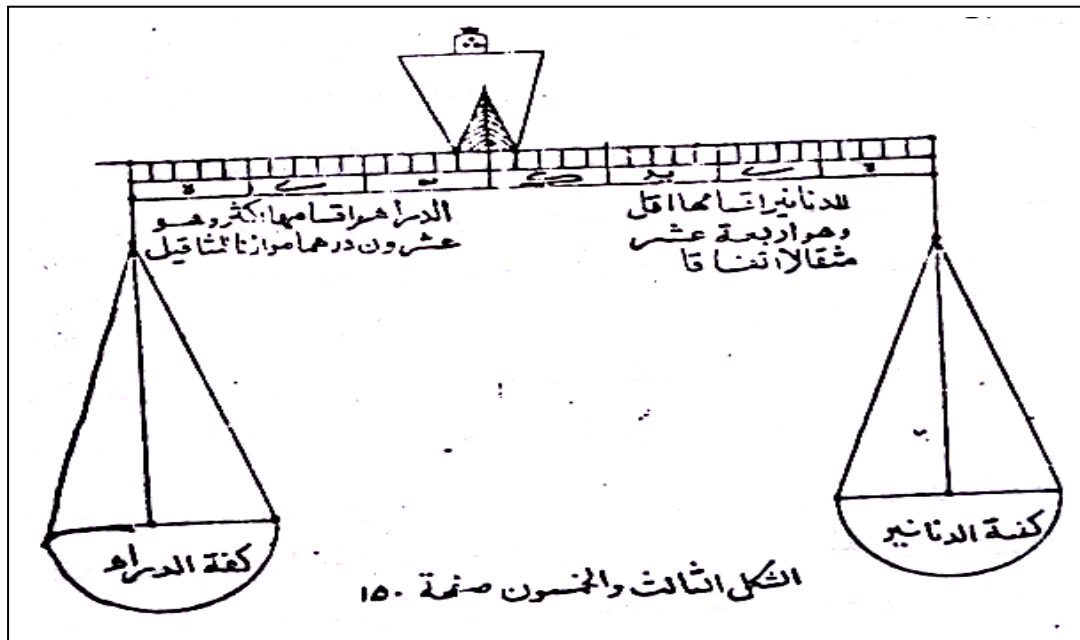 للدنانير اقسامها اقل
وهو اربعة عشر
مثقالا اتفاقا
الدراهم اقسامها اكثر وهو
عشرون درهما موازنا لمثاقيل
كفة الدنانير
كفة الدراهم
الشكل الثالث والخمسون صفحة ١٥٠